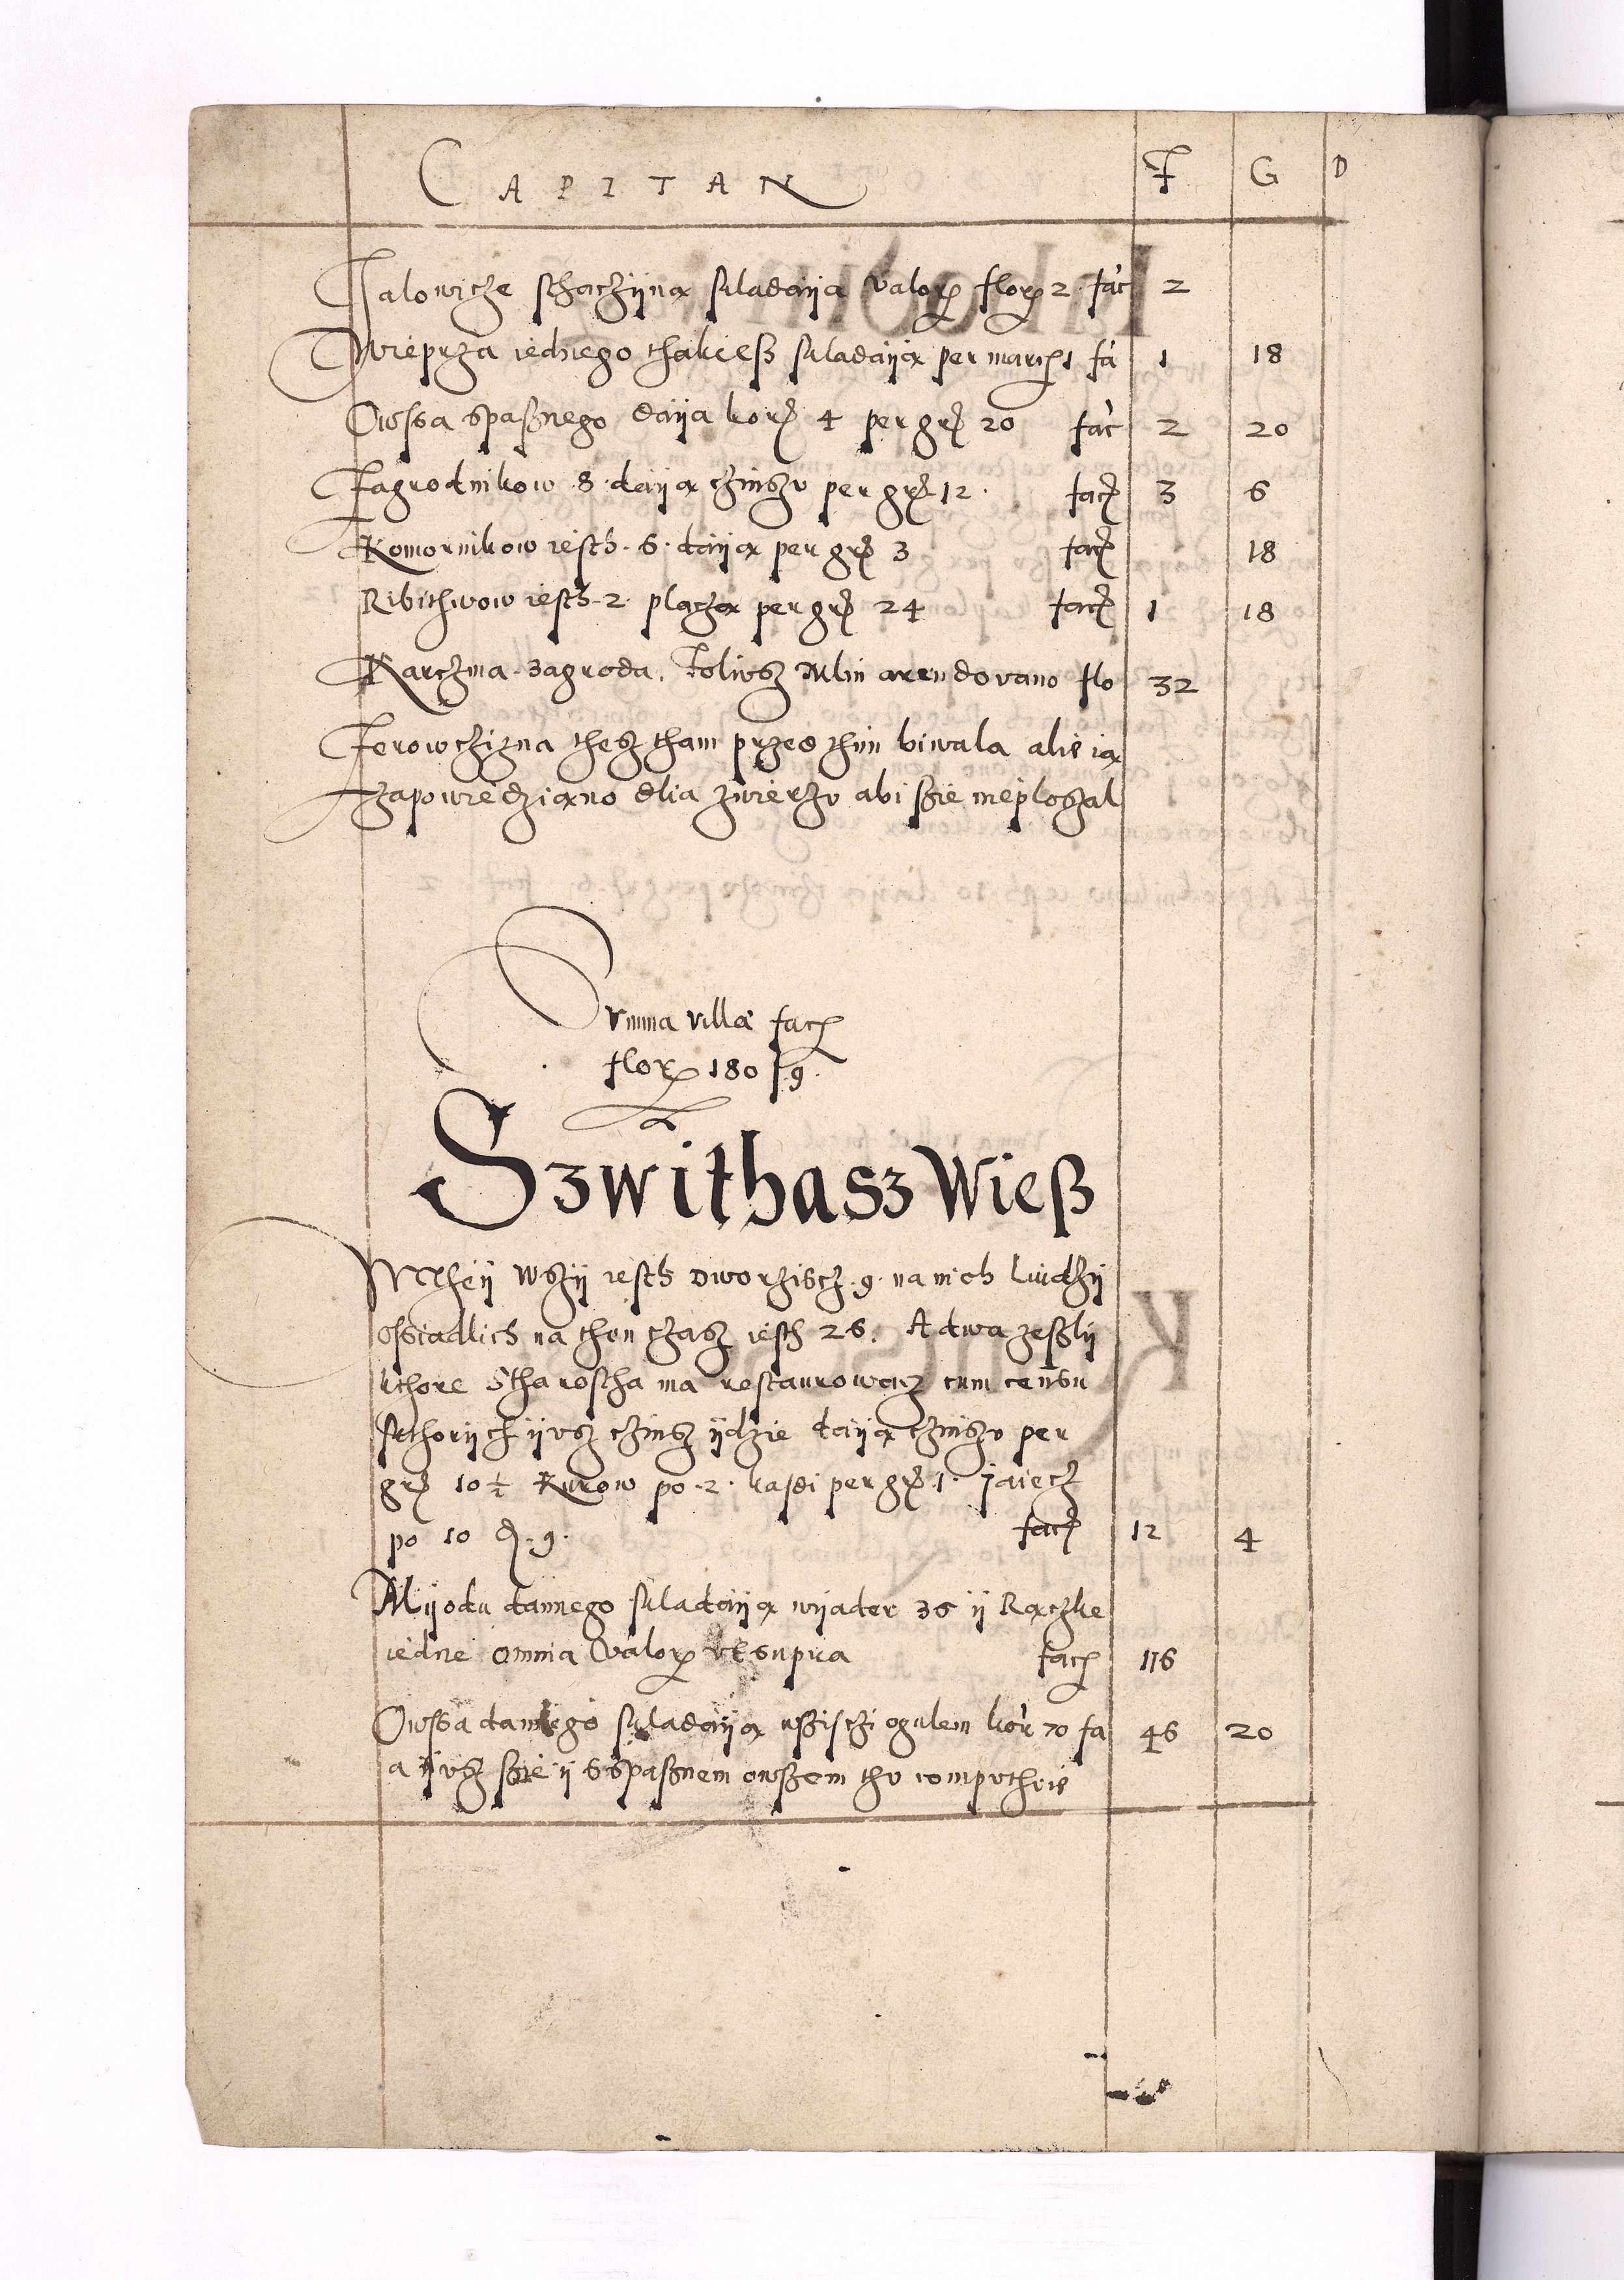 CAPITAN F G D
Jalowicze schaczijną składaiją valoꝝ floꝝ 2 fac 2
Wieprza iednego thakieß składaiją per marc 1 fa 1 18
Owssa spaßnego daiją kor 4 per gr 20 fac 2 20
Zagrodnikow 8 daiją czinszu per gr 12 fac 3 6
Komornikow iesth 6 daiją per gr 3 fac 18
Ribithwow iesth 2 placzą per gr 24 fac 1 18
Karczma zagroda, Foliusz Mlin arendovano flo 32
Zerowczizna thesz tham przed thim biwala alie ią
zapowiedziano dlia zwierzu abi szie nieploszal
Summa villæ fac
floꝝ 180 / 9
Szwithasz Wieß
W theij wszij iesth dworziscz 9 na nich liudzij
ossiadlich na thon czasz iesth 26. A dwa zeßlij
kthore Stharostha ma restaurowacz cum censu
s kthorijch ijusz czinsz ijdzie daiją czinszu per
gr 10 ½ Kurow po 2 kasdi per gr 1 Jaiecz
po 10 d 9 fac 12 4
Mijodu dannego składaiją wijader 36 ij Rączke
iedne omnia valoꝝ ut supra fac 116
Owssa dannego składaiją wßiscзi ogulem kor 70 fa 46 20
a ijusz szie ij s spaßnem owßem thu computhuie